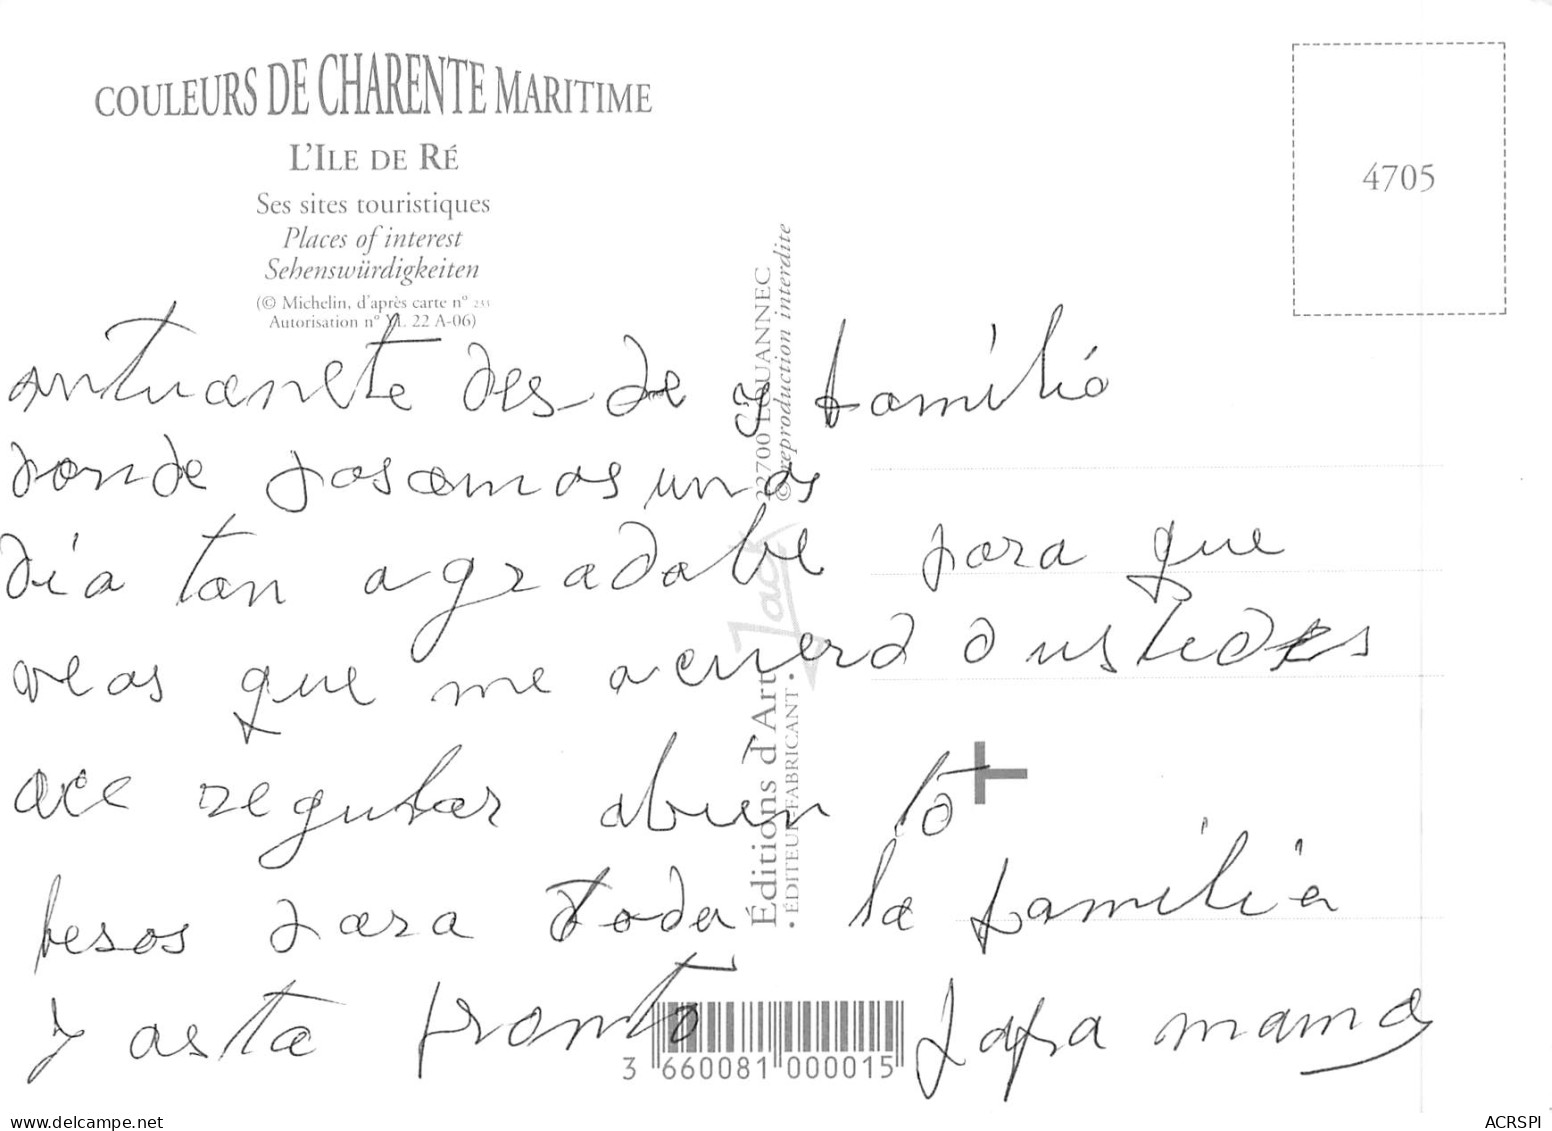 COULEURS DE CHARENTE MARITIME
L'ILE DE RÉ
Ses sites touristiques
Places of interest
Sehenswürdigkeiten
(© Michelin, d'après carte n° 233
Autorisation n° 22 A-06)
4705
antuanete des-de y familiá
donde pasamos unos
día tan agradable para que
veas que me acuerd a ustedes
ace regular abien to
besos para toda la familia
y asta pronto papa mama
Éditions d'Art Jack 22700 LOUANNEC
• ÉDITEUR FABRICANT • © reproduction interdite
3 660081 000015
www.delcampe.net
ACRSPI